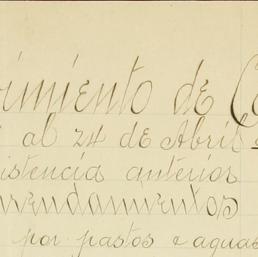 imiento de C
al 24 de Abril
istencia anterior
rrendamientos
por pastos e aguas